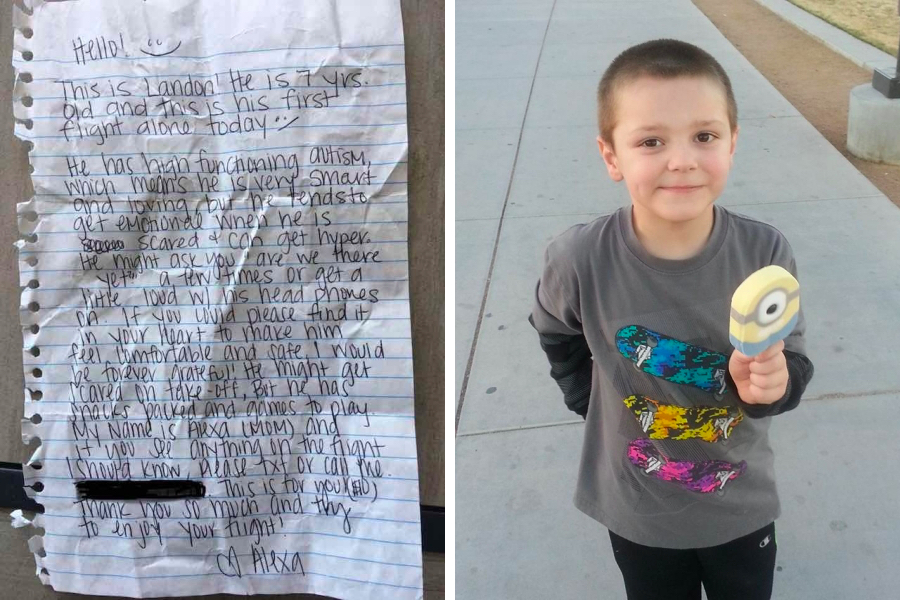 Hello!
This is Landon! He is 7 yrs.
Old and this is his first
flight alone today
He has high functioning autism,
which means he is very smart
and loving but he tends to
get emotional when he is
scared & can get hyper.
He might ask you "are we there
yet" a few times or get a
little loud w/ his head phones
on. If you could please find it
in your heart to make him
feel comfortable and safe, I would
be forever grateful! He might get
scared on take-off, But he has
snacks packed and games to play.
My Name is Alexa (Mom) and
if you see anything on the flight
I should know please txt or call me.
This is for you
thank you so much and try
to enjoy your flight!
Alexa